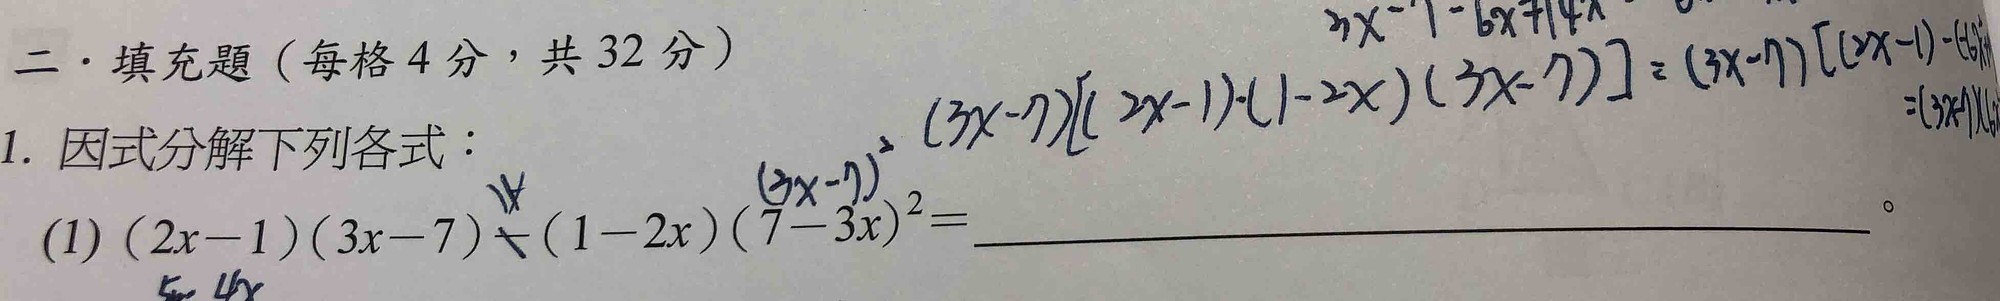 二.填充題(每格4分,共32分)
3x-7-6x+14x
(3x-7)[(2x-1)-(1-2x)(3x-7)]=(3x-7)[(2x-1)-(-6x
=(3x-7)(6x
1. 因式分解下列各式:
(3x-7)²
(1) (2x-1)(3x-7)-(1-2x)(7-3x)²=________。
4x